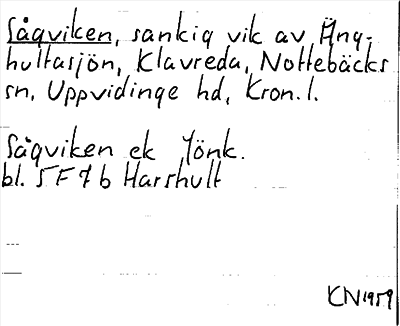 Sågviken, sankig vik av Äng-
hultasjön, Klavreda, Nottebäcks
sn, Uppvidinge hd, Kron. l.
Sågviken ek Jönk.
bl. 5 F 7 b Harshult
KN 1959